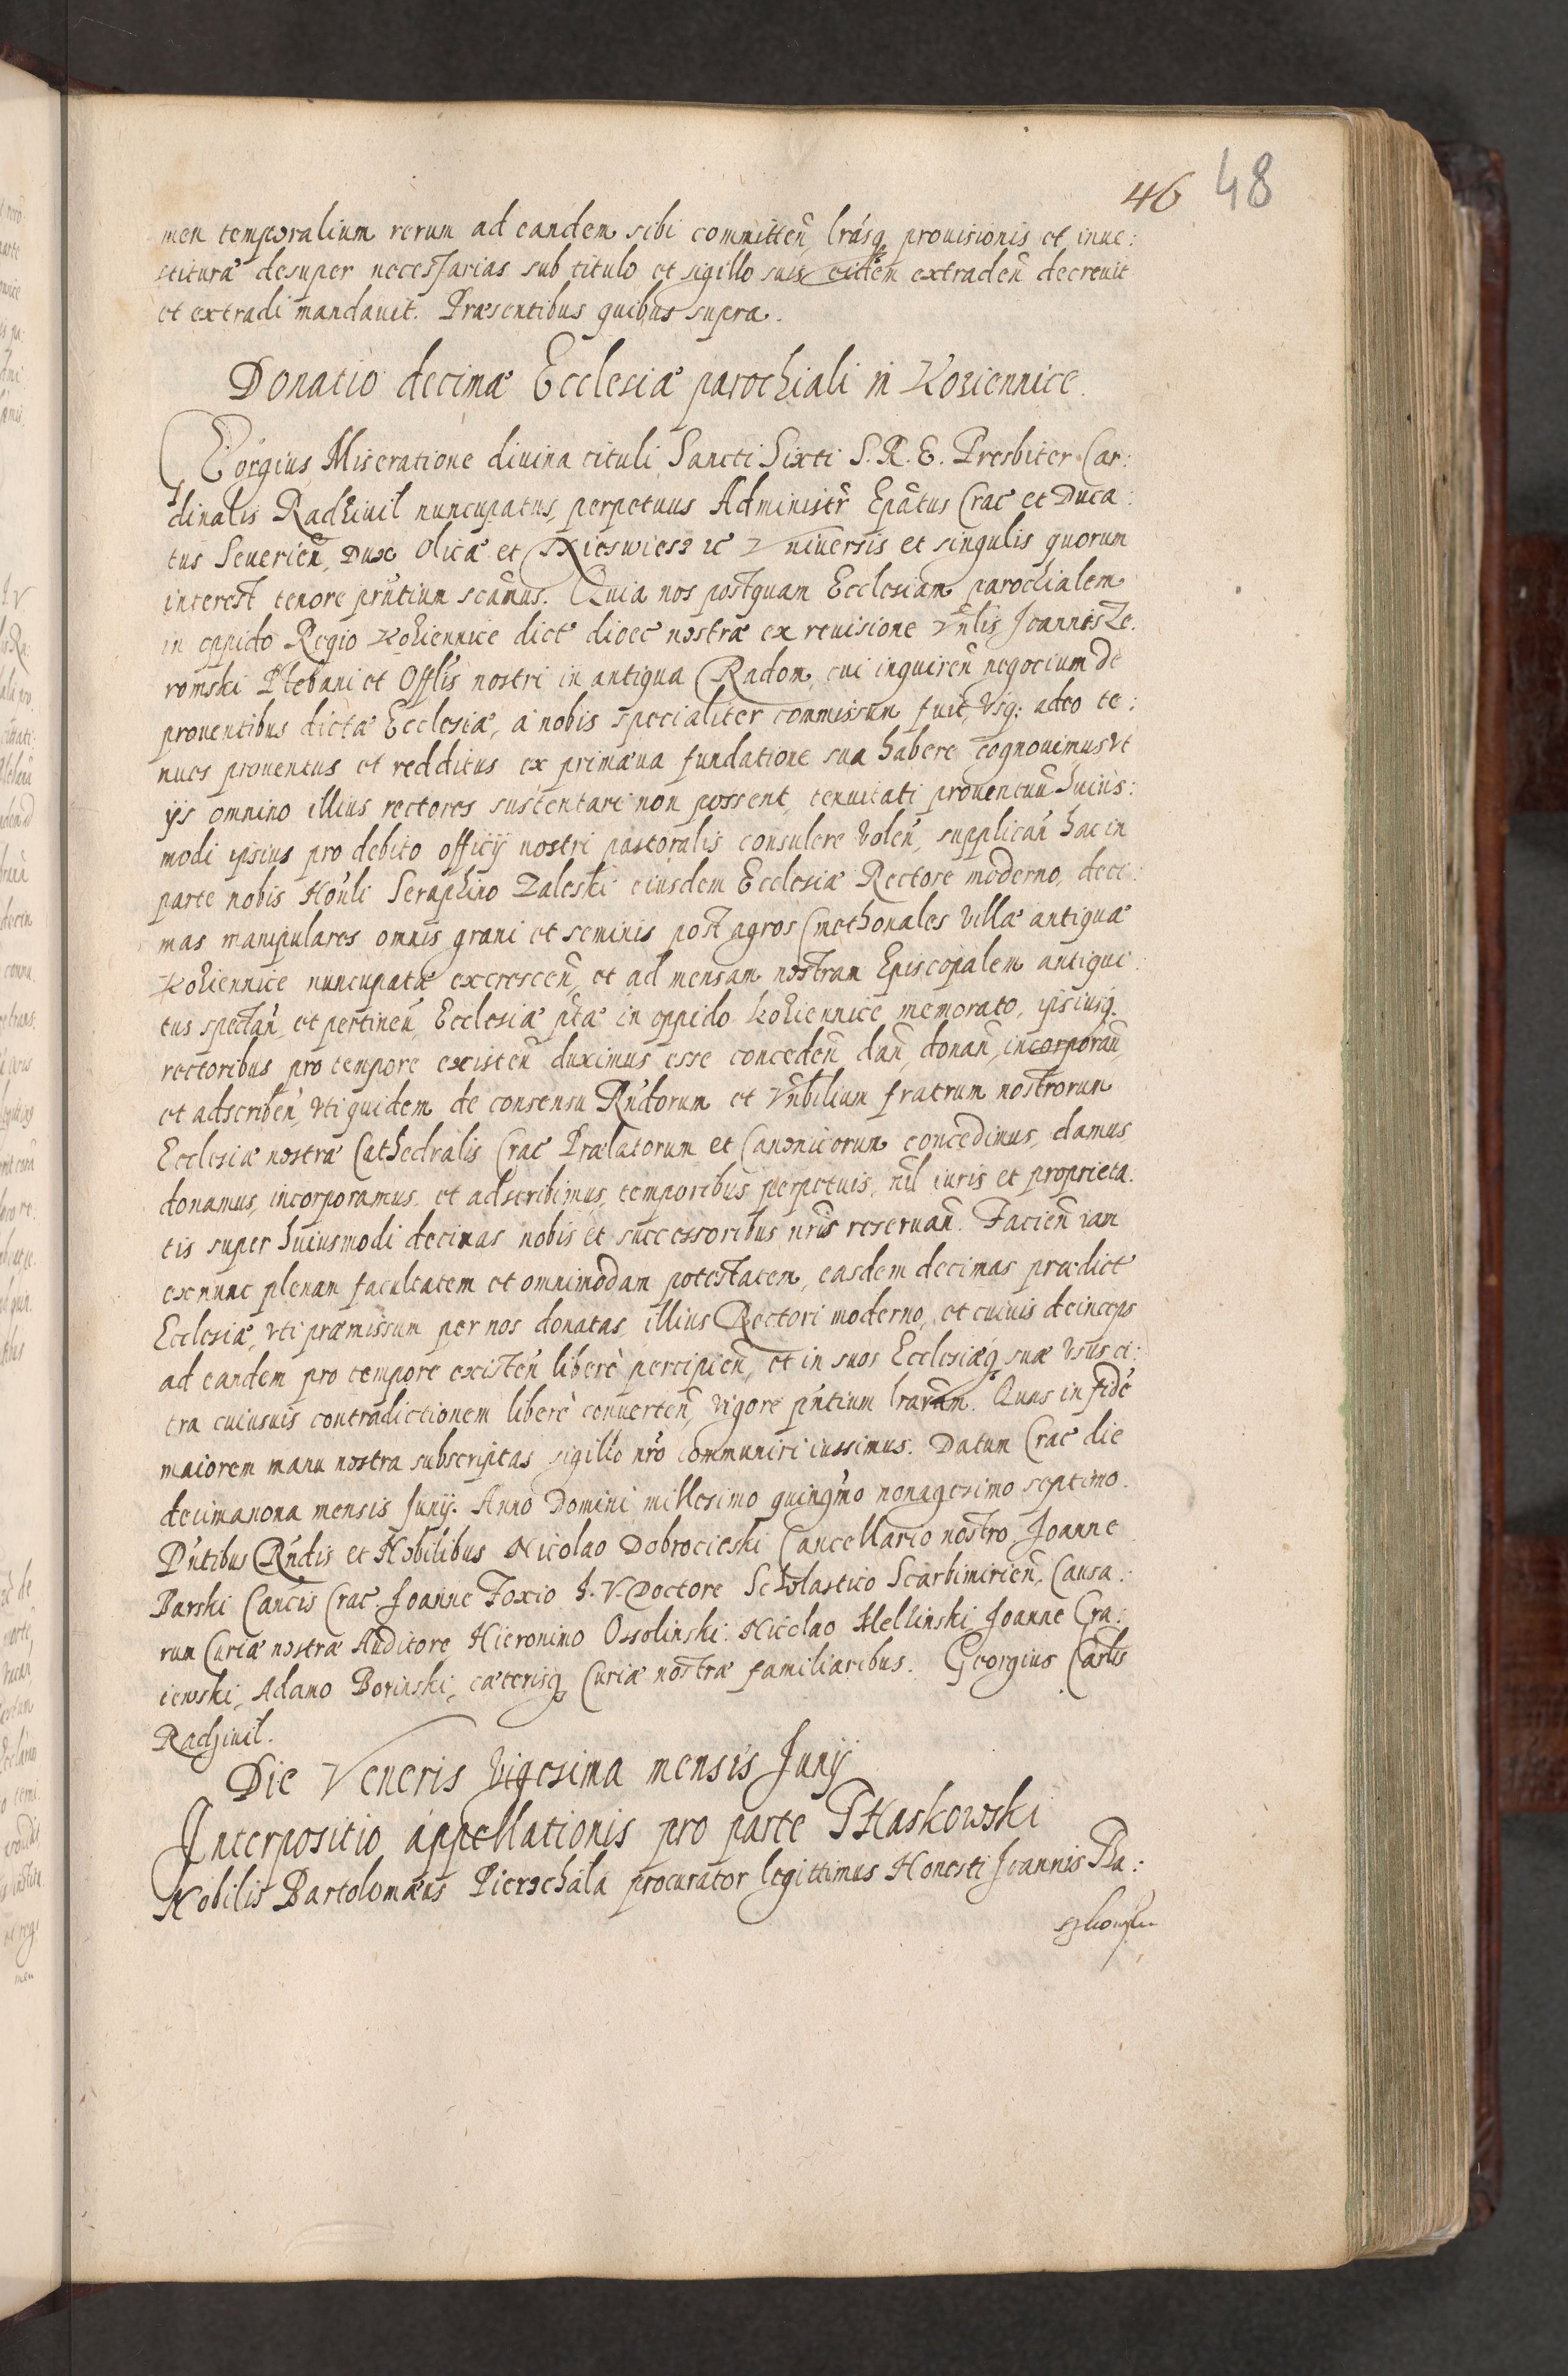 46 48
men temporalium rerum ad eandem sibi committeñ, lrásq́ prouisionis et inue:
stituræ desuper necessarias sub titulo et sigillo suis eidem extradeñ decreuit
et extradi mandauit. Præsentibus quibus supra.
Donatio decimæ Ecclesiæ parochiali in Koziennice.
GEorgius Miseratione diuina tituli Sancti Sixti S. R. E. Presbiter Car:
dinalis Radziuil nuncupatus, perpetuus Administr̃ Epãtus Crac̃ et Duca:
tus Seuerieñ, Dux Olicæ et Nieswiesz ꝛc Vniuersis et singulis quorum
interest tenore pñtium scimus. Quia nos postquam Ecclesiam parochialem
in oppido Regio Koziennice dictæ dioec̃ nostræ ex reuisione Vñlis Joannis Ze:
romski Plebani et Offlis nostri in antiqua Radom, cui inquireñ negocium de
prouentibus dictæ Ecclesiæ, a nobis specialiter commissum fuit, Vsq; adeo te:
nues prouentus et redditus ex primæua fundatione sua habere cognouimus vt
ijs omnino illius rectores sustentari non possent, tenuitati prouentuũ huius:
modi ipsius pro debito officij nostri pastoralis consulere Voleñ, supplicañ hac in
parte nobis Hoñli Seraphino Zaleski eiusdem Ecclesiæ Rectore moderno, deci:
mas manipulares omnis grani et seminis post agros Cmethonales Villæ antiquæ
Koziennice nuncupatæ excresceñ, et ad mensam nostram Episcopalem antiqui:
tus spectañ et pertineñ, Ecclesiæ p̃tæ in oppido Koziennice memorato, ipsiusq́
rectoribus pro tempore existeñ duximus esse concedeñ, dañ, donañ, incorporañ,
et adscribeñ, vti quidem de consensu Rñdorum et Vñbilium fratrum nostrorum
Ecclesiæ nostræ Cathedralis Crac̃ Prælatorum et Canonicorum concedimus, damus
donamus, incorporamus, et adscribimus, temporibus perpetuis, nil iuris et proprieta:
tis super huiusmodi decimas nobis et successoribus nr̃is reseruañ. Facieñ iam
exnunc plenam facultatem et omnimodam potestatem, easdem decimas prædictæ
Ecclesiæ, vti præmissum per nos donatas, illius Rectori moderno, et cuiuis deinceps
ad eandem pro tempore existeñ liberè percipieñ, et in suos Ecclesiæq́ suæ Vsus ci:
tra cuiusuis contradictionem liberè conuerteñ, vigore pñtium lrarum. Quas in fidẽ
maiorem manu nostra subscriptas sigillo nr̃o communiri iussimus. Datum Crac̃ die
decimanona mensis Junij. Anno Domini millesimo quingm̃o nonagesimo septimo.
Pñtibus Rñdis et Nobilibus Nicolao Dobrocieski Cancellario nostro, Joanne
Barski Cancis Crac̃ Joanne Foxio J. V. Doctore Scholastico Scarbimirieñ, Causa:
rum Curiæ nostræ Auditore, Hieronimo Ossolinski. Nicolao Hellinski Joanne Gra:
iewski, Adamo Borinski, cæterisq́ Curiæ nostræ familiaribus. Georgius Carlis
Radziuil.
Die Veneris Vigesima mensis Junij
Interpositio appellationis pro parte Plaskowski
Nobilis Bartolomæus Pierzchala procurator legittimus Honesti Joannis Pla:
szkowsky